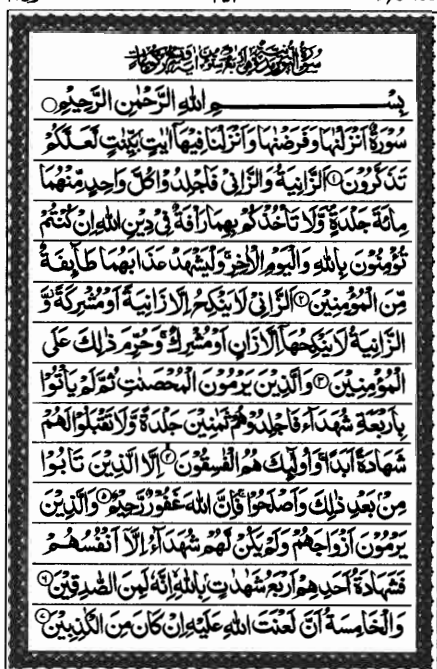 بِسْمِ اللهِ الرَّحْمٰنِ الرَّحِيْمِ
سُوْرَةٌ اَنْزَلْنٰهَا وَفَرَضْنٰهَا وَاَنْزَلْنَا فِيْهَاۤ اٰيٰتٍۭ بَيِّنٰتٍ لَّعَلَّكُمْ
تَذَكَّرُوْنَ ۱ اَلزَّانِيَةُ وَالزَّانِيْ فَاجْلِدُوْا كُلَّ وَاحِدٍ مِّنْهُمَا
مِائَةَ جَلْدَةٍ ۪ وَّلَا تَاْخُذْكُمْ بِهِمَا رَاْفَةٌ فِيْ دِيْنِ اللهِ اِنْ كُنْتُمْ
تُؤْمِنُوْنَ بِاللهِ وَالْيَوْمِ الْاٰخِرِ ۚ وَلْيَشْهَدْ عَذَابَهُمَا طَآىِٕفَةٌ
مِّنَ الْمُؤْمِنِيْنَ ۲ اَلزَّانِيْ لَا يَنْكِحُ اِلَّا زَانِيَةً اَوْ مُشْرِكَةً ۫ وَّ
الزَّانِيَةُ لَا يَنْكِحُهَاۤ اِلَّا زَانٍ اَوْ مُشْرِكٌ ۚ وَحُرِّمَ ذٰلِكَ عَلَى
الْمُؤْمِنِيْنَ ۳ وَالَّذِيْنَ يَرْمُوْنَ الْمُحْصَنٰتِ ثُمَّ لَمْ يَاْتُوْا
بِاَرْبَعَةِ شُهَدَآءَ فَاجْلِدُوْهُمْ ثَمٰنِيْنَ جَلْدَةً وَّلَا تَقْبَلُوْا لَهُمْ
شَهَادَةً اَبَدًا ۚ وَاُولٰٓىِٕكَ هُمُ الْفٰسِقُوْنَ ۴ اِلَّا الَّذِيْنَ تَابُوْا
مِنْۢ بَعْدِ ذٰلِكَ وَاَصْلَحُوْا ۚ فَاِنَّ اللهَ غَفُوْرٌ رَّحِيْمٌ ۵ وَالَّذِيْنَ
يَرْمُوْنَ اَزْوَاجَهُمْ وَلَمْ يَكُنْ لَّهُمْ شُهَدَآءُ اِلَّاۤ اَنْفُسُهُمْ
فَشَهَادَةُ اَحَدِهِمْ اَرْبَعُ شَهٰدٰتٍۭ بِاللهِ ۙ اِنَّهٗ لَمِنَ الصّٰدِقِيْنَ ۶
وَالْخَامِسَةُ اَنَّ لَعْنَتَ اللهِ عَلَيْهِ اِنْ كَانَ مِنَ الْكٰذِبِيْنَ ۷